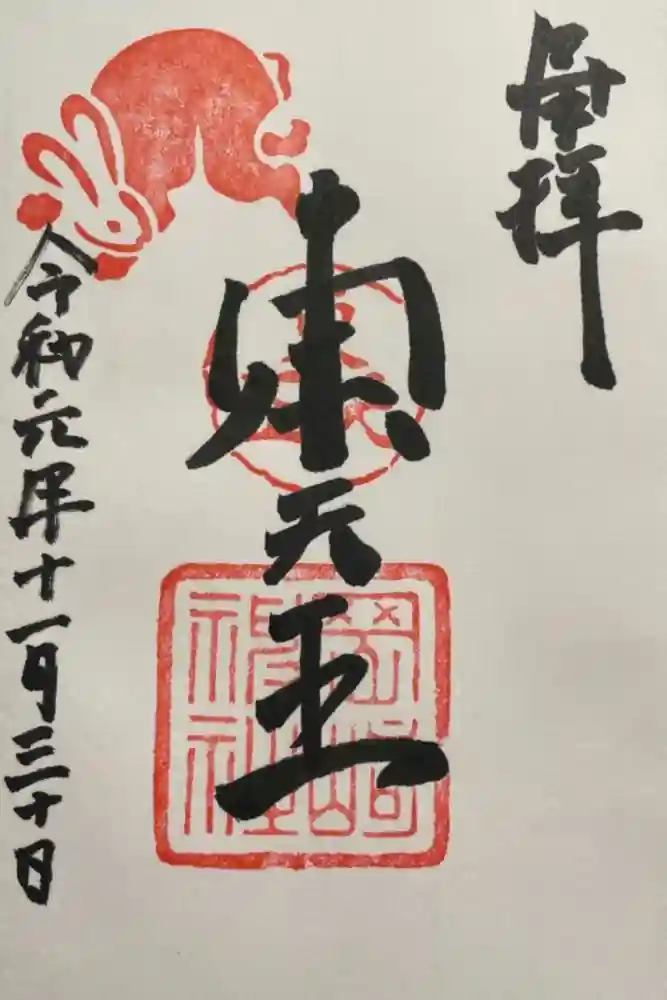 奉拝
東天王
岡崎
神社
令和元年十一月三十日